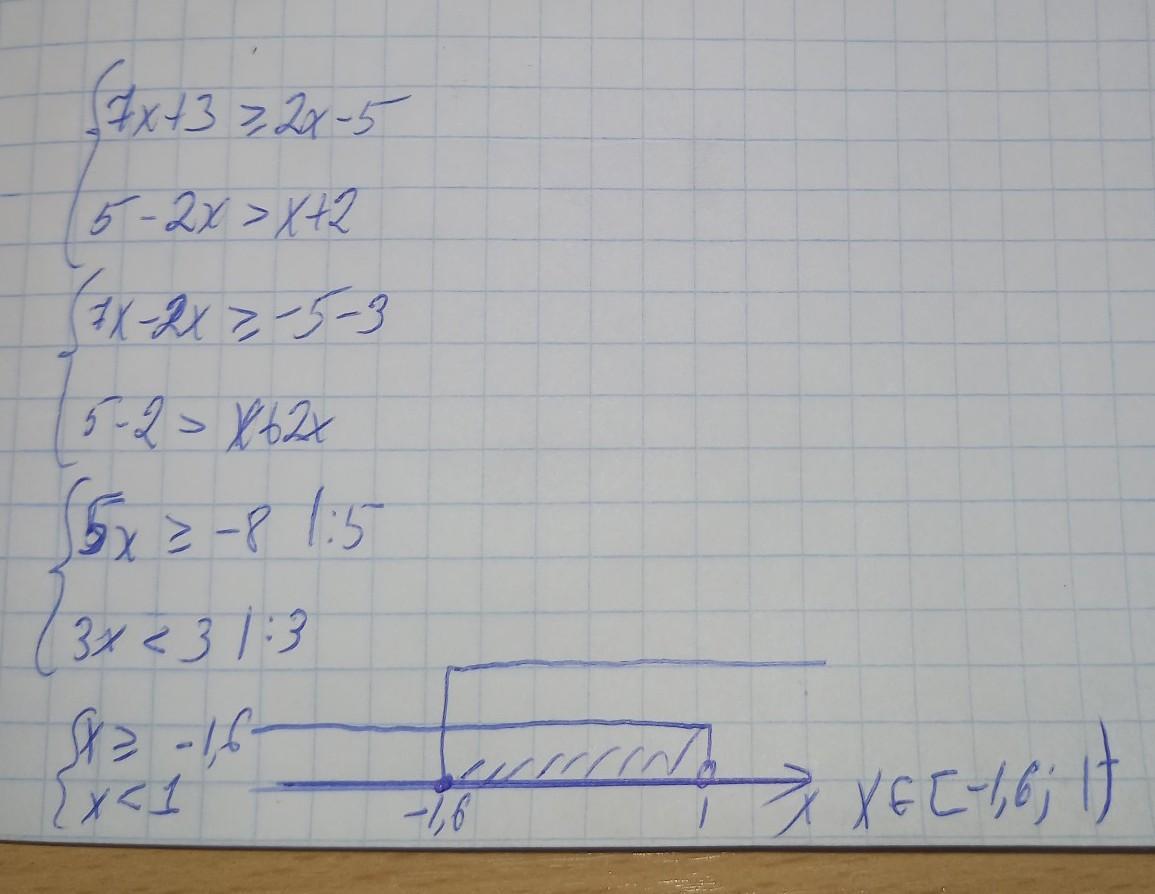 7x+3 ≥ 2x-5
5-2x > x+2
7x-2x ≥ -5-3
5-2 > x+2x
5x ≥ -8 |:5
3x < 3 |:3
x ≥ -1,6
x < 1
-1,6 1 x
x ∈ [-1,6; 1)